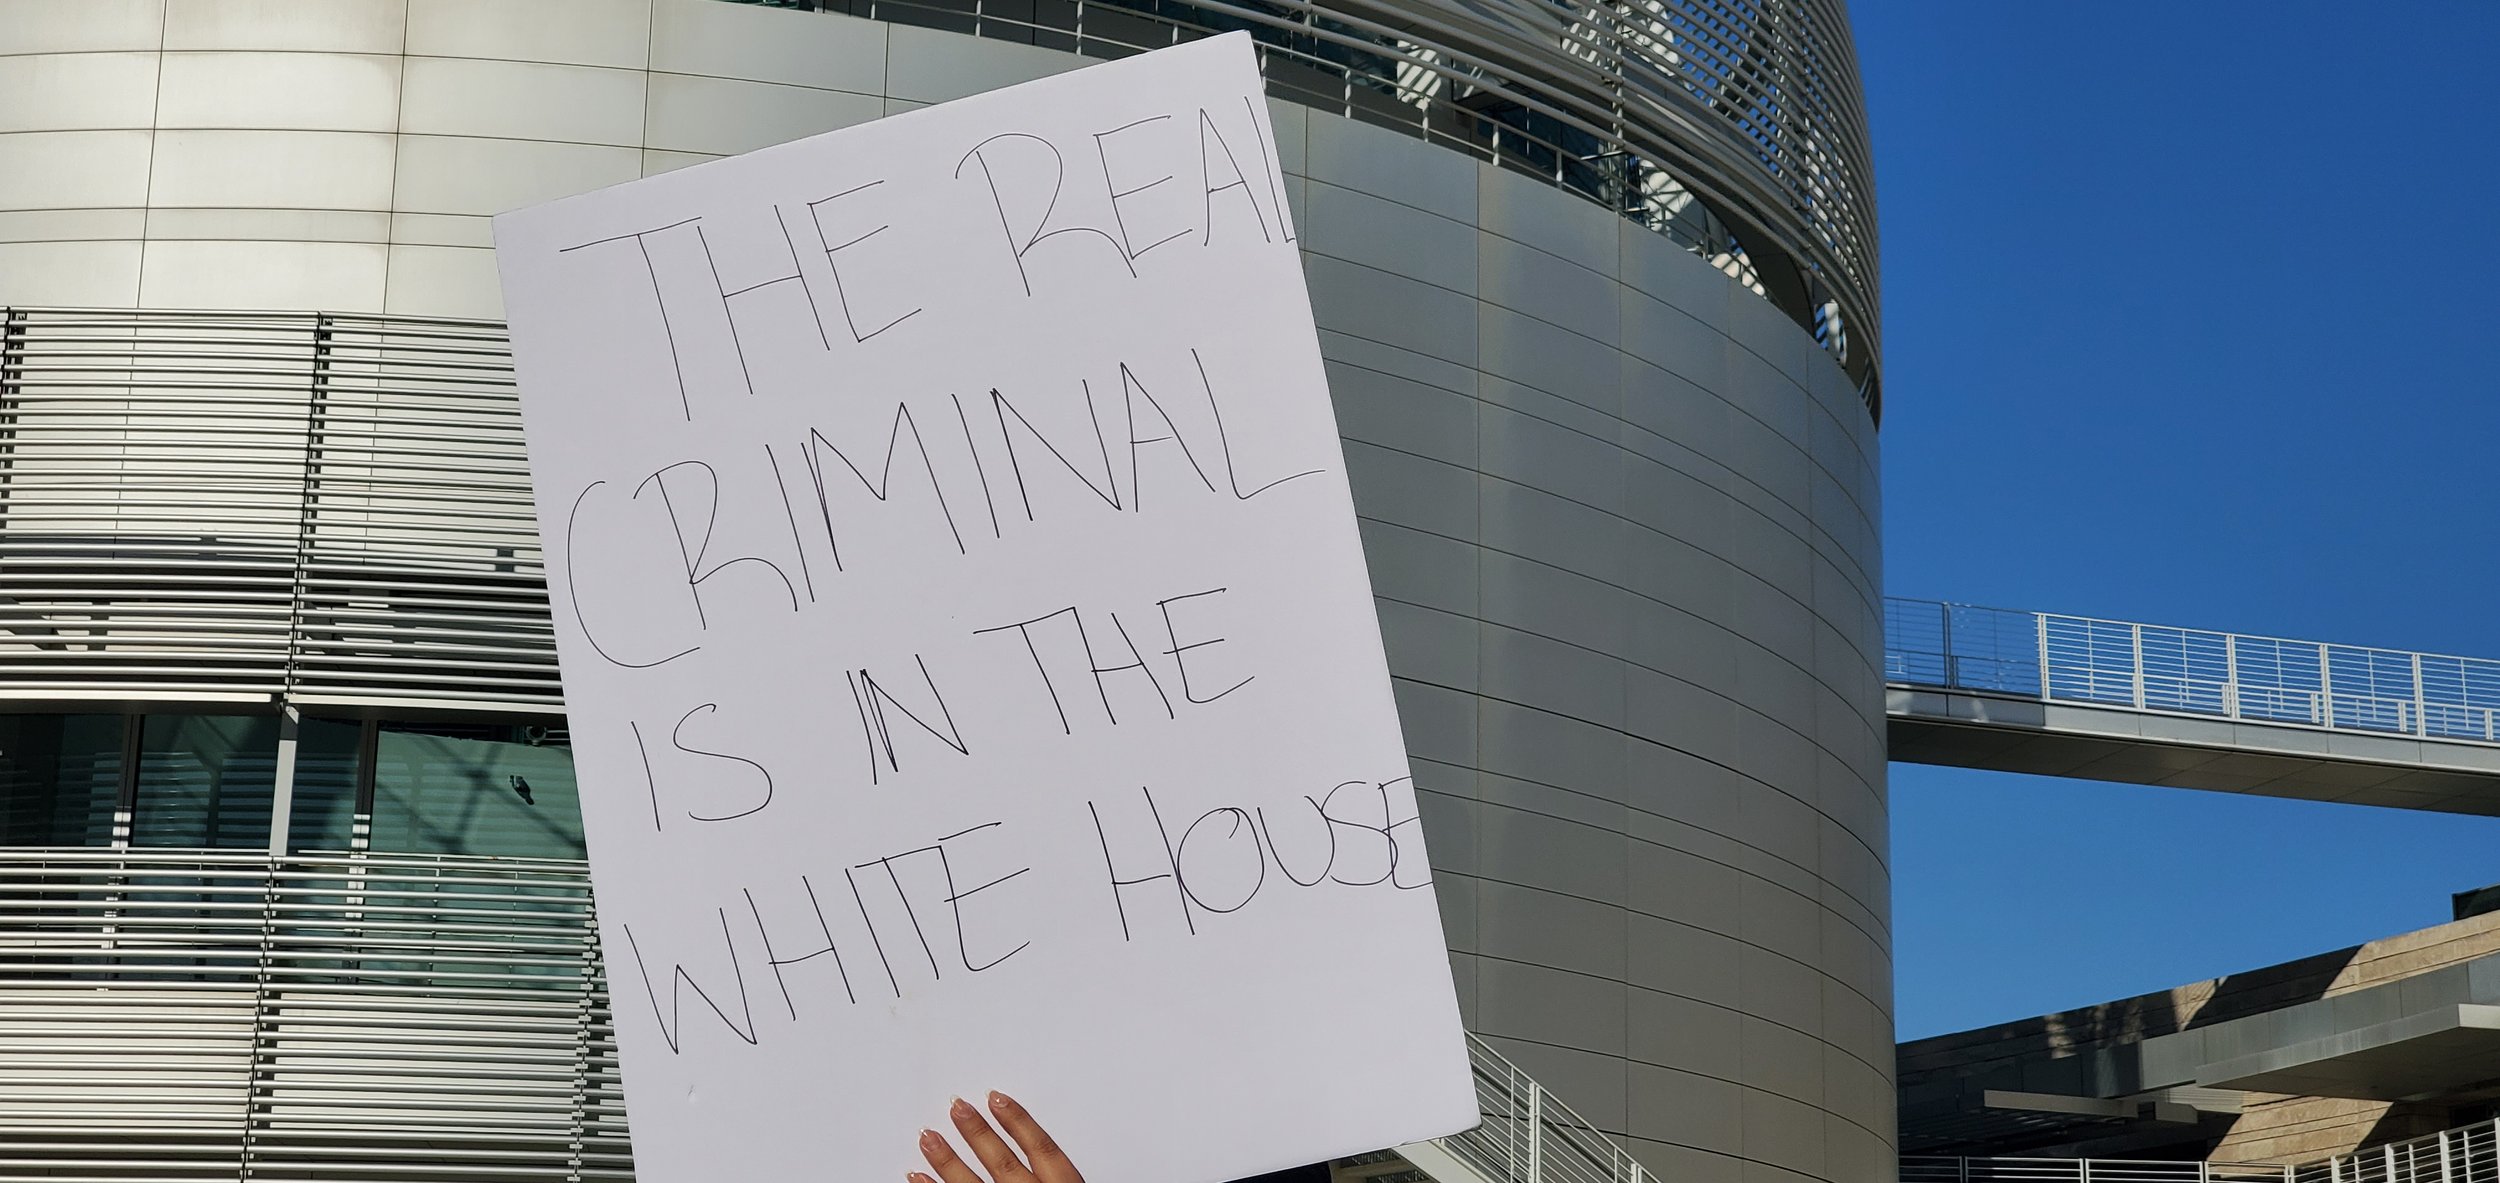 THE REAL
CRIMINAL
IS IN THE
WHITE HOUSE